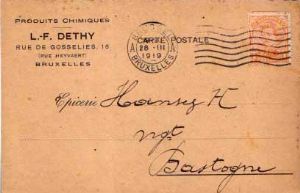 PRODUITS CHIMIQUES
L.-F. DETHY
RUE DE GOSSELIES, 16
(RUE HEYVAERT)
BRUXELLES
CARTE POSTALE
28 III
1919
BRUXELLES
Epicerie Hansez K
ngt
Bastogne